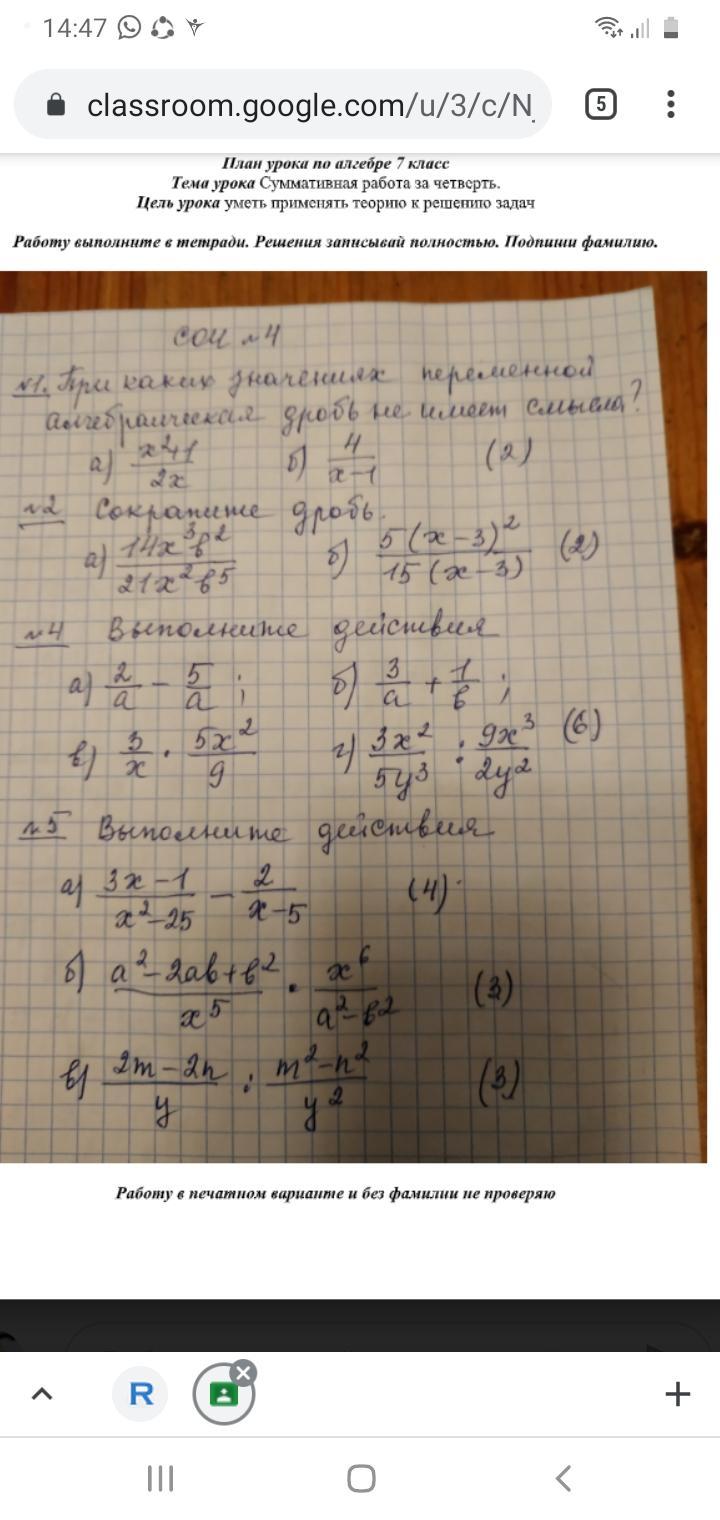 14:47
classroom.google.com/u/3/c/N
5
План урока по алгебре 7 класс
Тема урока Суммативная работа за четверть.
Цель урока уметь применять теорию к решению задач
Работу выполните в тетради. Решения записывай полностью. Подпиши фамилию.
СОЧ №4
№1. При каких значениях переменной
алгебраическая дробь не имеет смысла?
а) (x²+1)/(2x)   б) 4/(x-1)   (2)
№2 Сократите дробь.
а) (14x³b²)/(21x²b⁵)   б) (5(x-3)²)/(15(x-3))   (2)
№4 Выполните действия
а) 2/a - 5/a ;   б) 3/a + 1/b ;
в) 3/x · 5x²/9   г) 3x²/5y³ : 9x³/2y²   (6)
№5 Выполните действия
а) (3x-1)/(x²-25) - 2/(x-5)   (4)
б) (a²-2ab+b²)/x⁵ · x⁶/(a²-b²)   (3)
в) (2m-2n)/y : (m²-n²)/y²   (3)
Работу в печатном варианте и без фамилии не проверяю
R